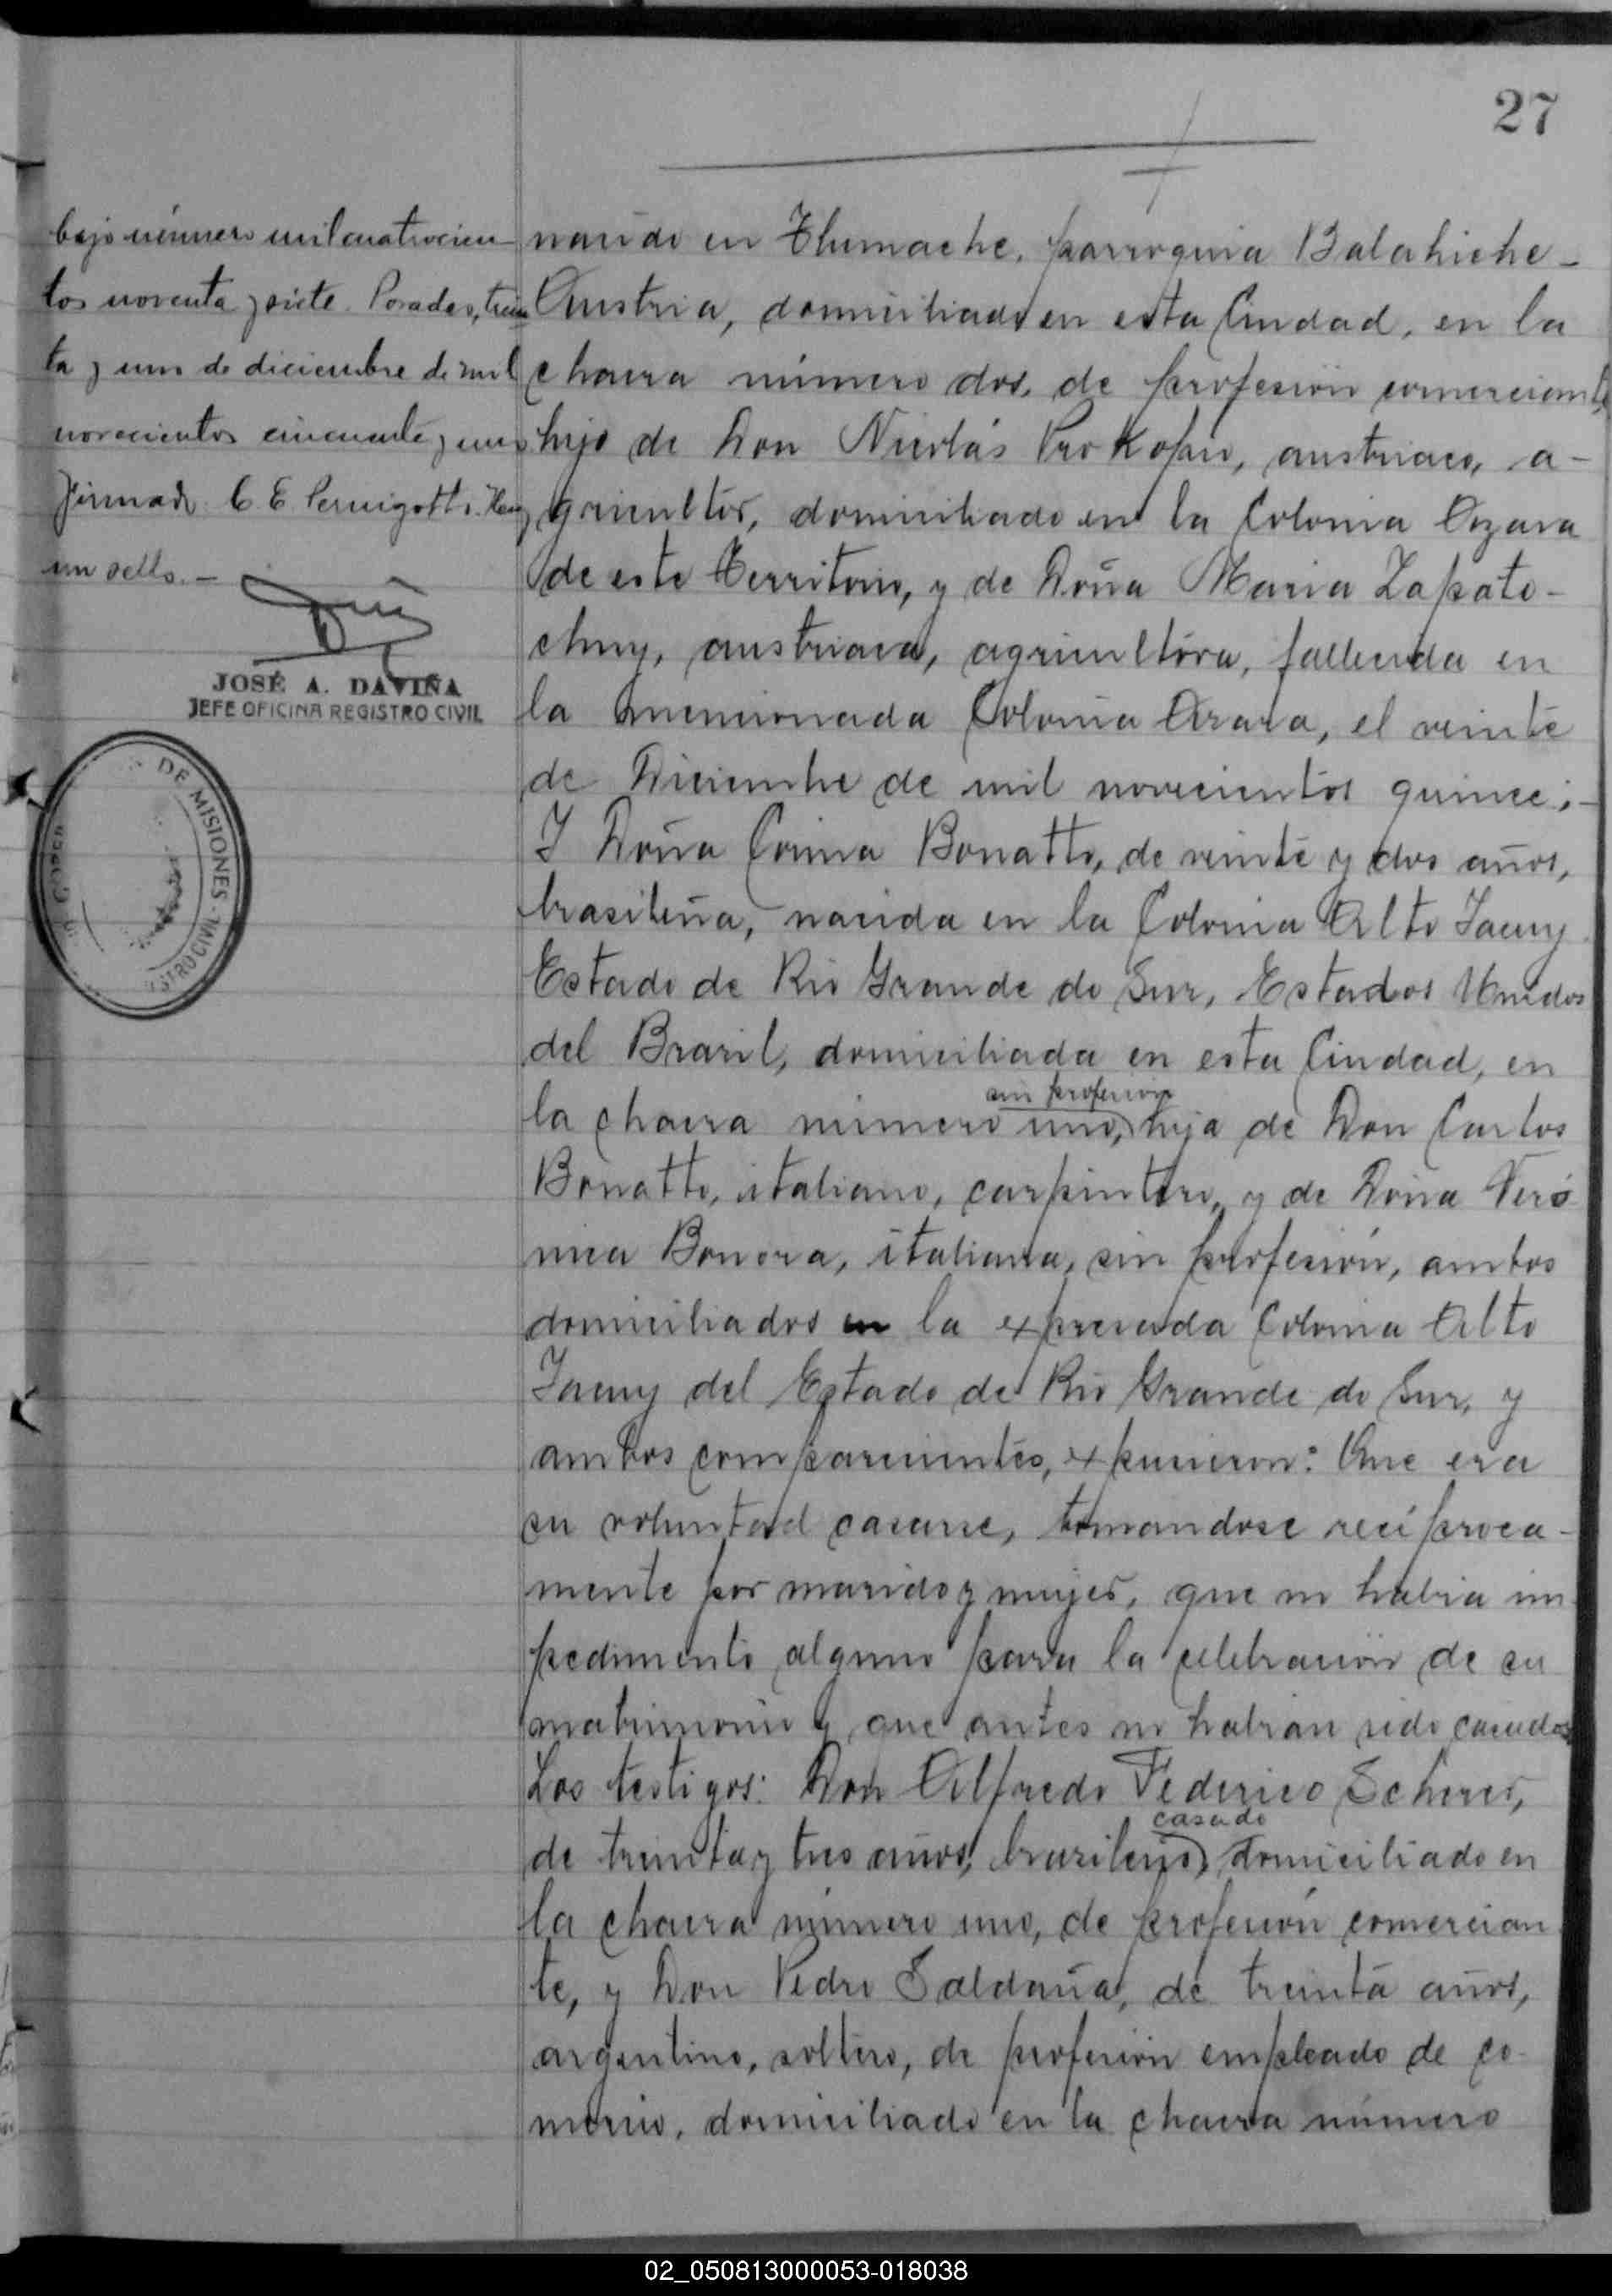 27
bajo número mil cuatrocien-
tos noventa y siete. Posadas, trein
ta y uno de diciembre de mil
novecientos cincuenta y uno
Firmado. C E Pernigotti. Hay
un sello.-
JOSÉ A. DAVIÑA
JEFE OFICINA REGISTRO CIVIL
DE MISIONES
STRO CIVIL
nacido en Thumache, parroquia Balahiche-
Austria, domiciliado en esta Ciudad, en la
chacra número dos, de profesión comerciante,
hijo de Don Nicolás Prokopio, austriaco, a-
gricultor, domiciliado en la Colonia Azara
de este Territorio, y de Doña Maria Zapato-
chny, austriaca, agricultora, fallecida en
la mencionada Colonia Azara, el veinte
de Diciembre de mil novecientos quince;-
Y Doña Corina Bonatto, de veinte y dos años,
brasileña, nacida en la Colonia Alto Jacuy
Estado de Rio Grande do Sur, Estados Unidos
del Brazil, domiciliada en esta Ciudad, en
sin profesión
la chacra número uno, hija de Don Carlos
Bonatto, italiano, carpintero, y de Doña Veró
nica Bonora, italiana, sin profesión, ambos
domiciliados en la expresada Colonia Alto
Jacuy del Estado de Rio Grande do Sur, y
ambos comparecientes, expusieron: Que era
su voluntad casarse, tomandose recíproca-
mente por marido y mujer, que no habia im
pedimento alguno para la celebración de su
matrimonio y que antes no habian sido casados.
Los testigos: Don Alfredo Federico Scherer,
casado
de treinta y tres años, brasileño, domiciliado en
la chacra número uno, de profesión comercian
te, y Don Pedro Saldaña, de treinta años,
argentino, soltero, de profesión empleado de co-
mercio, domiciliado en la chacra número
02_050813000053-018038